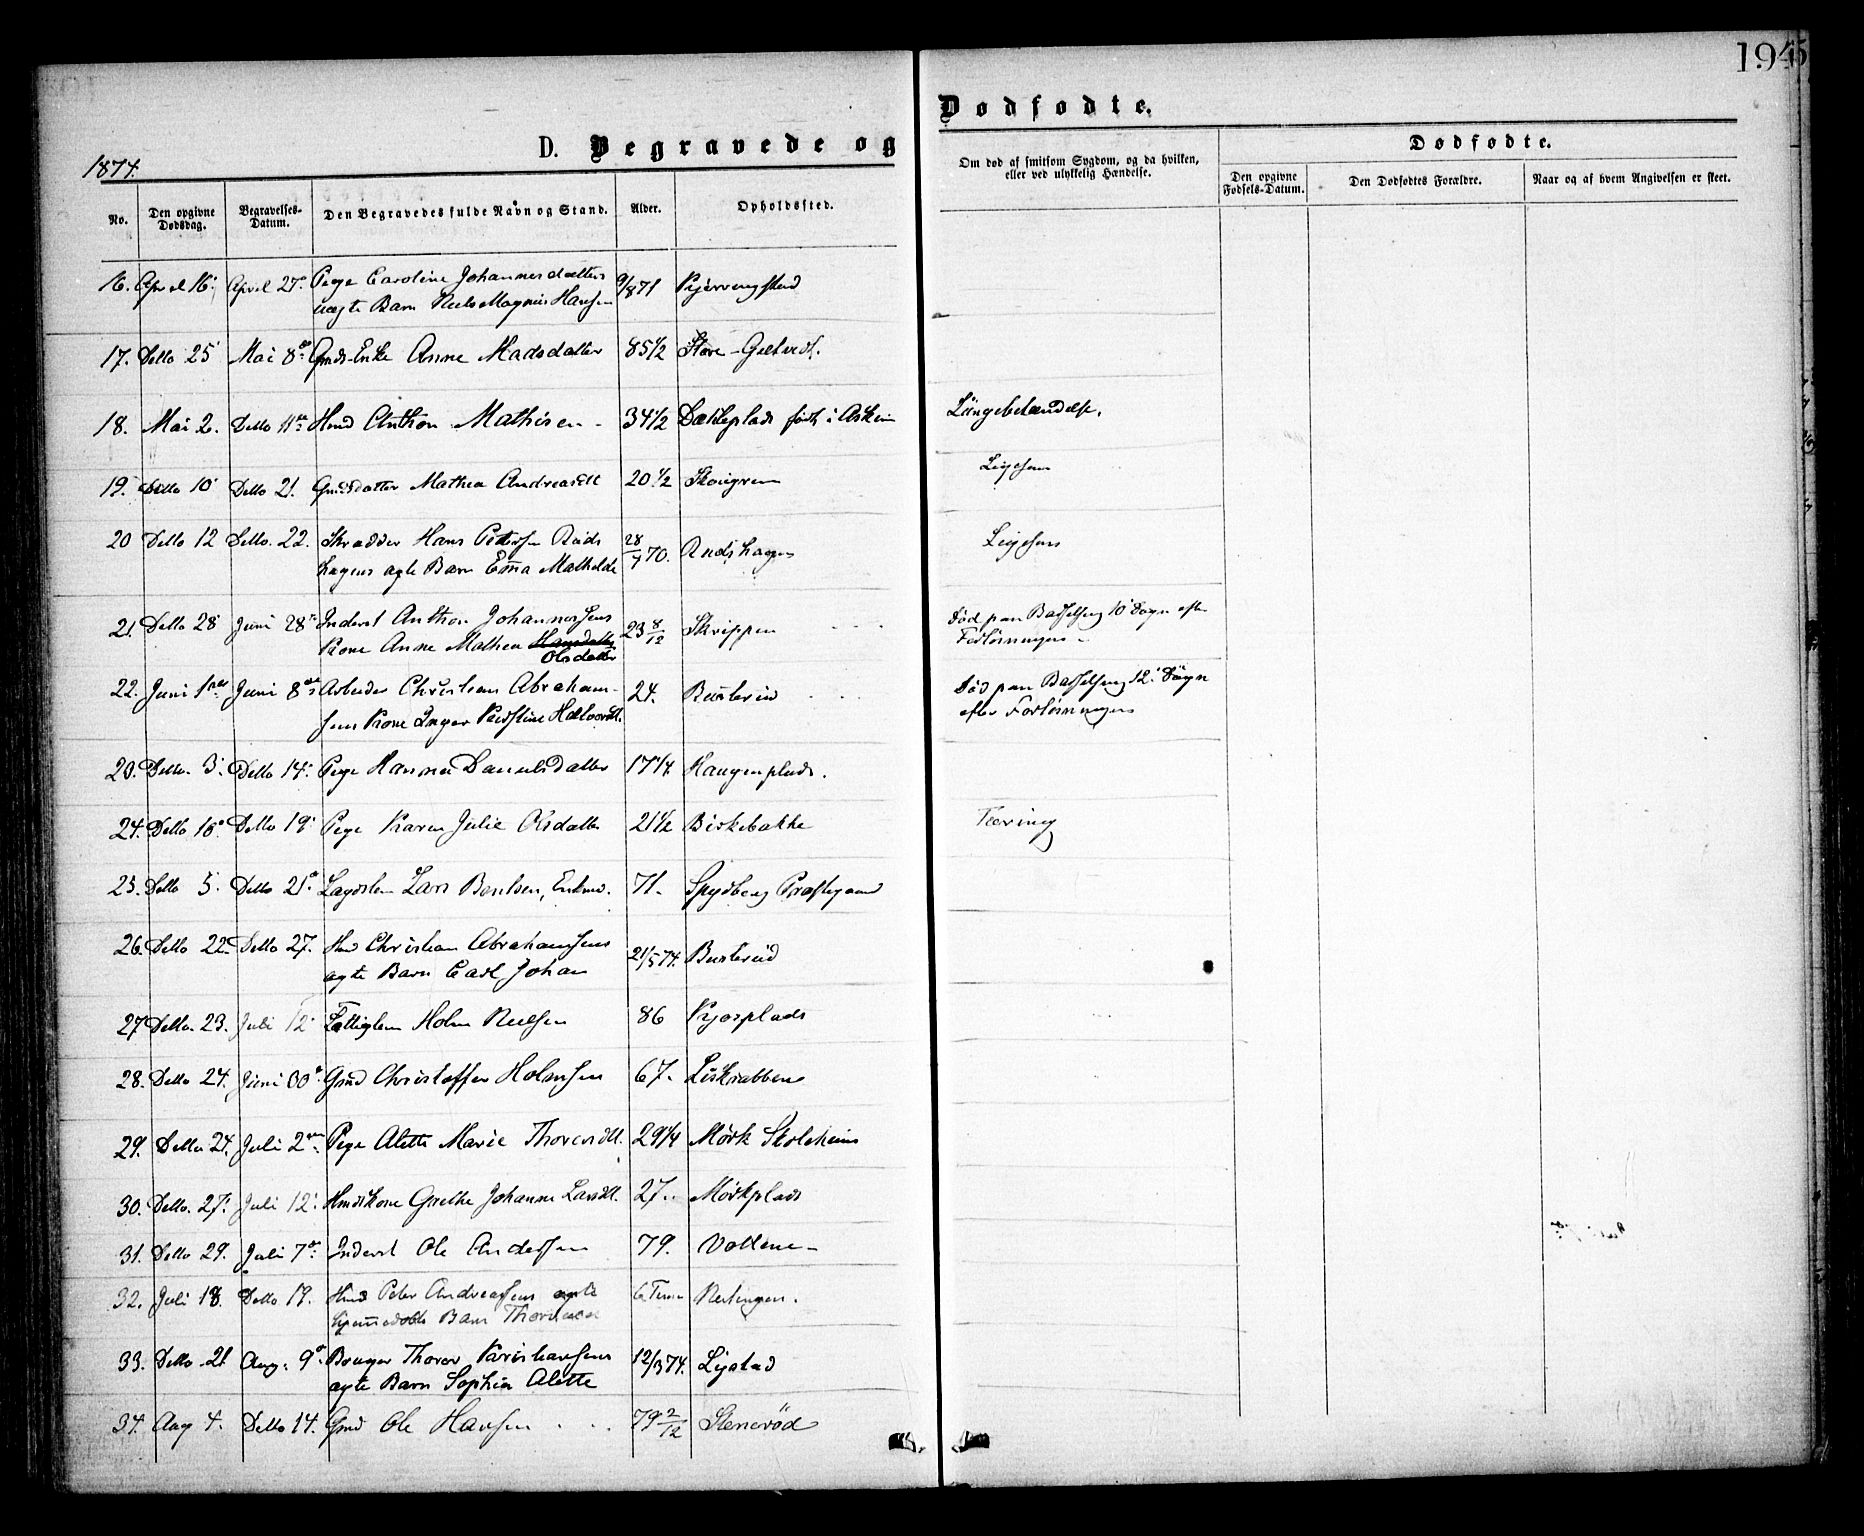 194
D. Begravede og
Dødfødte.
1874.
No.
Den opgivne Dødsdag.
Begravelses-Datum.
Den Begravedes fulde Navn og Stand.
Alder.
Opholdssted.
Om død af smitsom Sygdom, og da hvilken, eller ved ulykkelig Hændelse.
Dødfødte.
Den opgivne Fødsels-Datum.
Den Dødfødtes Forældre.
Naar og af hvem Angivelsen er skeet.
16. April 16. April 27. Pige Caroline Johannesdatters
uægte Barn Niels Magnus Hansen
17. Detto 25 Mai 8de Gmds-Enke Anne Madsdatter 85 1/2 Store-Geltvedt.
18. Mai 2. Detto 11te Hmd Anthon Mathisen 34 1/2 Bakkeplads født i Askim Lungebetændelse.
19. Detto 10 Detto 21. Gmdsdatter Mathea Andreasdt 20 1/2 Ligesom
20 Detto 12 Detto 22. Skrædder Hans Petersen Ruds
hagens ægte Barn Emma Mathilde 28/7 70. Rudshagen Ligesom
21. Detto 28 Juni 28 Inderst Anthon Johannessens
Kone Anne Mathea Hansdatter Olsdatter 23 8/12 Skrippen Død paa Barselseng 10 Dage efter
Forløsningen
22. Juni 1ste Juni 8de Arbeider Christian Abraham-
sens Kone Inger Kirstine Halvorsdt. 24. Busterud Død paa Barselseng 12 Døgn
efter Forløsningen
23. Detto 3. Detto 14. Pige Hanna Danielsdatter 17 1/4 Haugenplads.
24. Detto 10 Detto 19. Pige Karen Julie Olsdatter 21 1/2 Birkebakke Tæring
25. Detto 5. Detto 21 Lægdslem Lars Bentsen, Enkm. 71. Spydberg Præstegaard
26. Detto 22 Detto 27. Hmd Christian Abrahamsens
ægte Barn Carl Johan 21/5 74. Busterud
27 Detto 23. Juli 12. Fattiglem Holm Nielsen 86 Kjosplads
28. Detto 24. Juni 30 Gmd Christoffer Holmsen 67. Liskrabben
29. Detto 24. Juli 2den Pige Alette Marie Thorersdt. 29 1/4 Mørk Skoleheim
30. Detto 27. Juli 12. Hmdskone Grethe Johanne Larsdt. 27. Mørkplads
31. Detto 29. Juli 7de Inderst Ole Andersen 79. Vollene
32. Juli 18. Detto 19. Hmd Peter Andreassens ægte
hjemmedøbte Barn 6 Timer
33. Detto 21 Aug. 9de Bruger Thorer Kristiansens
ægte Barn Sophie Alette 12/3 74. Lystad
34. Aug 4. Detto 14. Gmd Ole Hansen 79 2/12 Stenerød